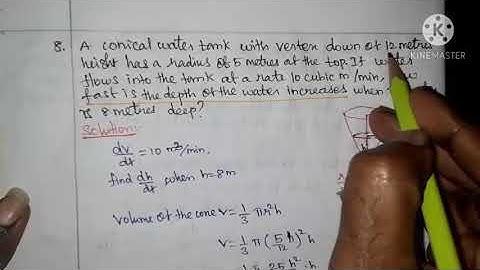 8. A conical water tank with vertex down of 12 metres
height has a radius of 5 metres at the top. If water
flows into the tank at a rate 10 cubic m/min,
fast is the depth of the water increases when
is 8 metres deep?
Solution:
dv/dt = 10 m³/min,
find dh/dt when h=8m
volume of the cone V = 1/3 πr²h
V = 1/3 π (5/12 h)² h
25 h² . h
KINEMASTER